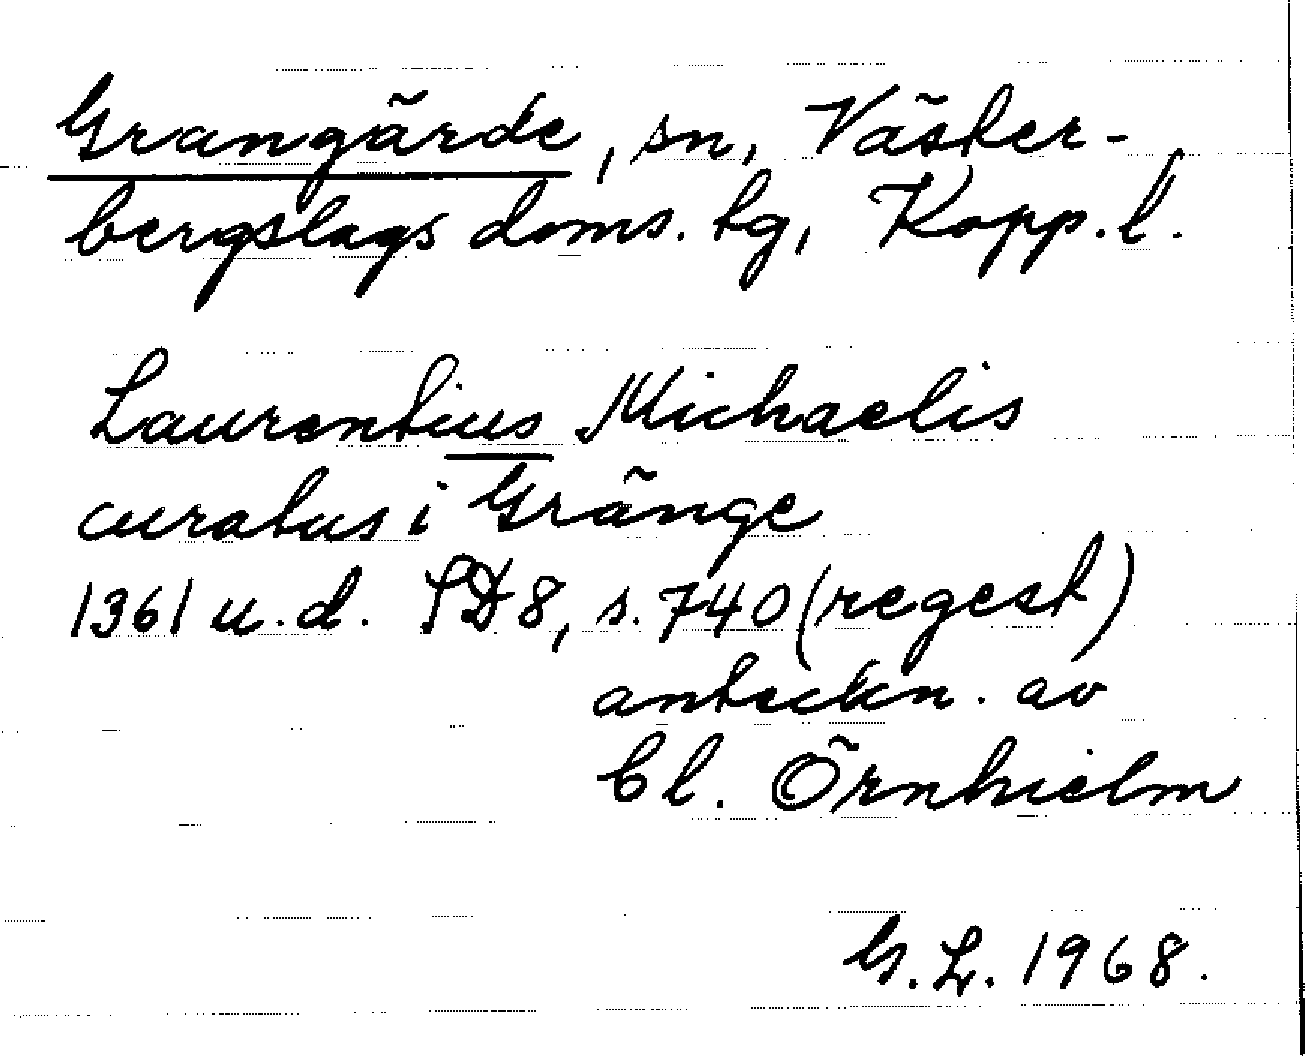 Grangärde, sn, Väster-
bergslags doms. tg, Kopp. l.
Laurentius Michaelis
curatus i Gränge
1361 u.d. SD 8, s. 740 (regest)
anteckn. av
Cl. Örnhielm
G. L. 1968.